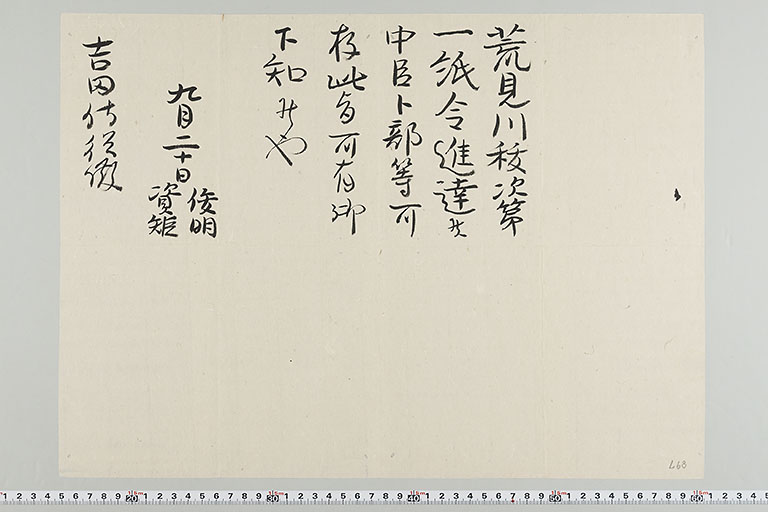 荒見川祓次第
一紙令進達候
中臣卜部等可
存此旨可有御
下知候也
九月二十日
俊明
資矩
吉田侍従殿
L68